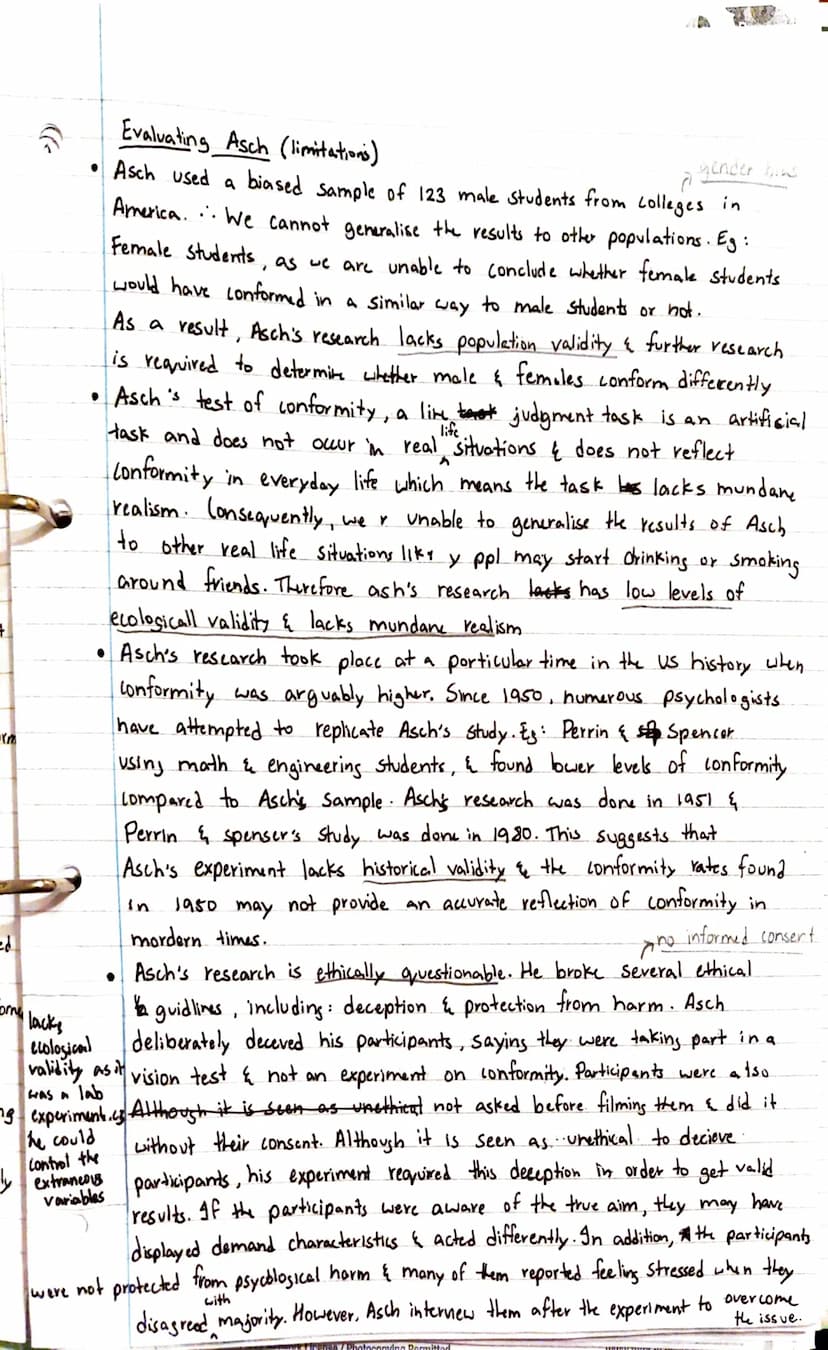 Evaluating Asch (limitations)
gender bias
• Asch used a biased sample of 123 male students from colleges in
America. ∴ We cannot generalise the results to other populations. Eg:
Female students, as we are unable to conclude whether female students
would have conformed in a similar way to male students or not.
As a result, Asch's research lacks population validity & further research
is required to determine whether male & females conform differently
• Asch's test of conformity, a line judgment task is an artificial
task and does not occur in real life situations & does not reflect
conformity in everyday life which means the task lacks mundane
realism. Consequently, we r unable to generalise the results of Asch
to other real life situations like y ppl may start drinking or smoking
around friends. Therefore ash's research lacks has low levels of
ecologicall validity & lacks mundane realism
• Asch's research took place at a particular time in the US history when
conformity was arguably higher. Since 1950, numerous psychologists
have attempted to replicate Asch's study. Eg: Perrin & Spencer
using math & engineering students, & found lower levels of conformity
compared to Asch's sample. Asch's research was done in 1951 &
Perrin & spenser's study was done in 1980. This suggests that
Asch's experiment lacks historical validity & the conformity rates found
in 1950 may not provide an accurate reflection of conformity in
mordern times.
no informed consent
• Asch's research is ethically questionable. He broke several ethical
guidlines, including: deception & protection from harm. Asch
deliberately deceved his participants, saying they were taking part in a
vision test & not an experiment on conformity. Participants were also
Although it is seen as unethical not asked before filming them & did it
without their consent. Although it is seen as unethical to decieve
participants, his experiment required this deception in order to get valid
results. If the participants were aware of the true aim, they may have
displayed demand characteristics & acted differently. In addition, the participants
were not protected from psychological harm & many of them reported feeling stressed when they
disagreed with majority. However, Asch interview them after the experiment to overcome
the issue.
lacks
ecological
validity as it
was a lab
experiment. eg
he could
control the
extraneous
variables